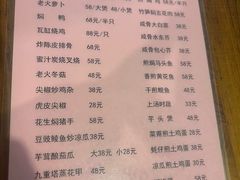 老大萝卜 58/大煲 48/小煲
焖鸭 88元/半只
瓦缸烧鸡 88元/半只
炸陈皮排骨 68元
蜜汁炭烧叉烧 58元
老火冬菇 48元
尖椒炒鸡杂 38元
虎皮尖椒 28元
花生焖猪手 58元
豆豉鲮鱼炒凉瓜38元
芋茸酿茄瓜 大38元 小28元
九重塔蒸花甲 48元
竹笋焖五花肉 58元
咸骨大白菜 38元
咸骨芥菜 38元
咸骨包心芥 38元
煎焗马头鱼
香煎黄花鱼
干煎鲮鱼
上汤时蔬 33元
芋头煲 48元
菜甫煎土鸡蛋
蚝仔煎土鸡蛋
凉瓜煎土鸡蛋